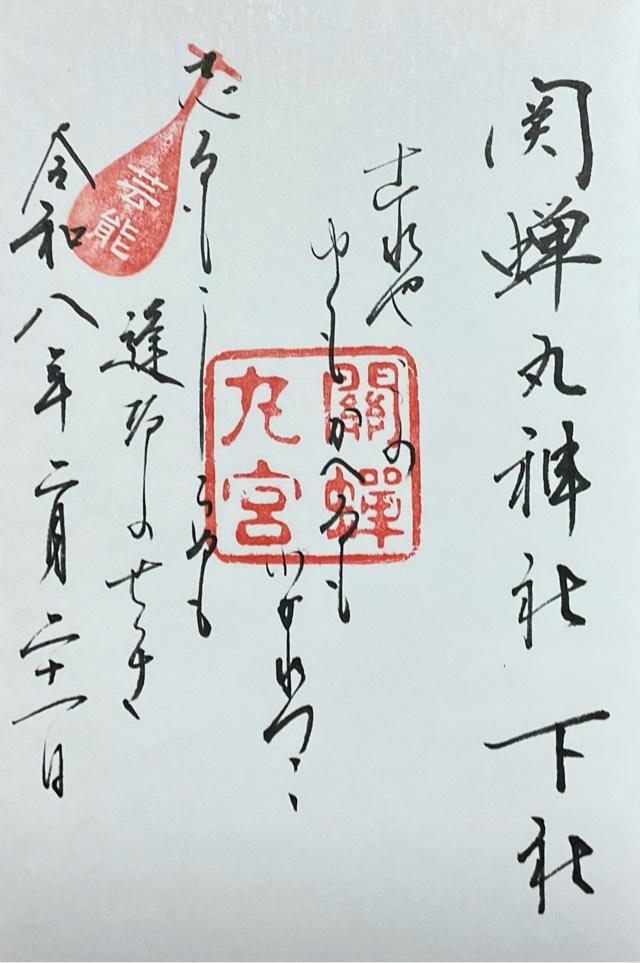 関蝉丸神社 下社
これやこの
ゆくもかへるも
わかれつゝ
志るもしらぬも
逢坂のせき
令和八年二月二十一日
關蟬
丸宮
芸能